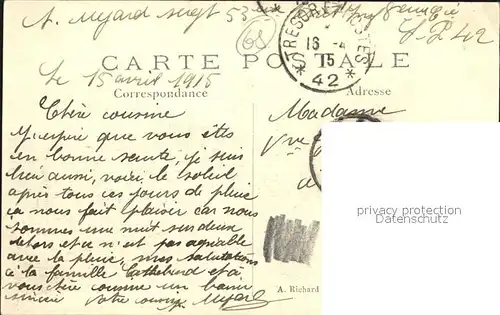 A. Myard sergt 53e
S.P. 42
68
TRESOR ET POSTES
16 -4
15
* 42 *
CARTE POSTALE
Le 15 avril 1915
Correspondance
Adresse
Chère cousine
Madame
J'espère que vous êtes
Vve
en bonne santé, je suis
bien aussi, voici le soleil
après tous ces jours de pluie
ça nous fait plaisir car nous
sommes une nuit sur deux
dehors et ce n'est pas agréable
avec la pluie, mes salutations
à la famille et à
vous chère cousine un baiser
sincère votre cousin Myard
privacy protection
Datenschutz
A. Richard